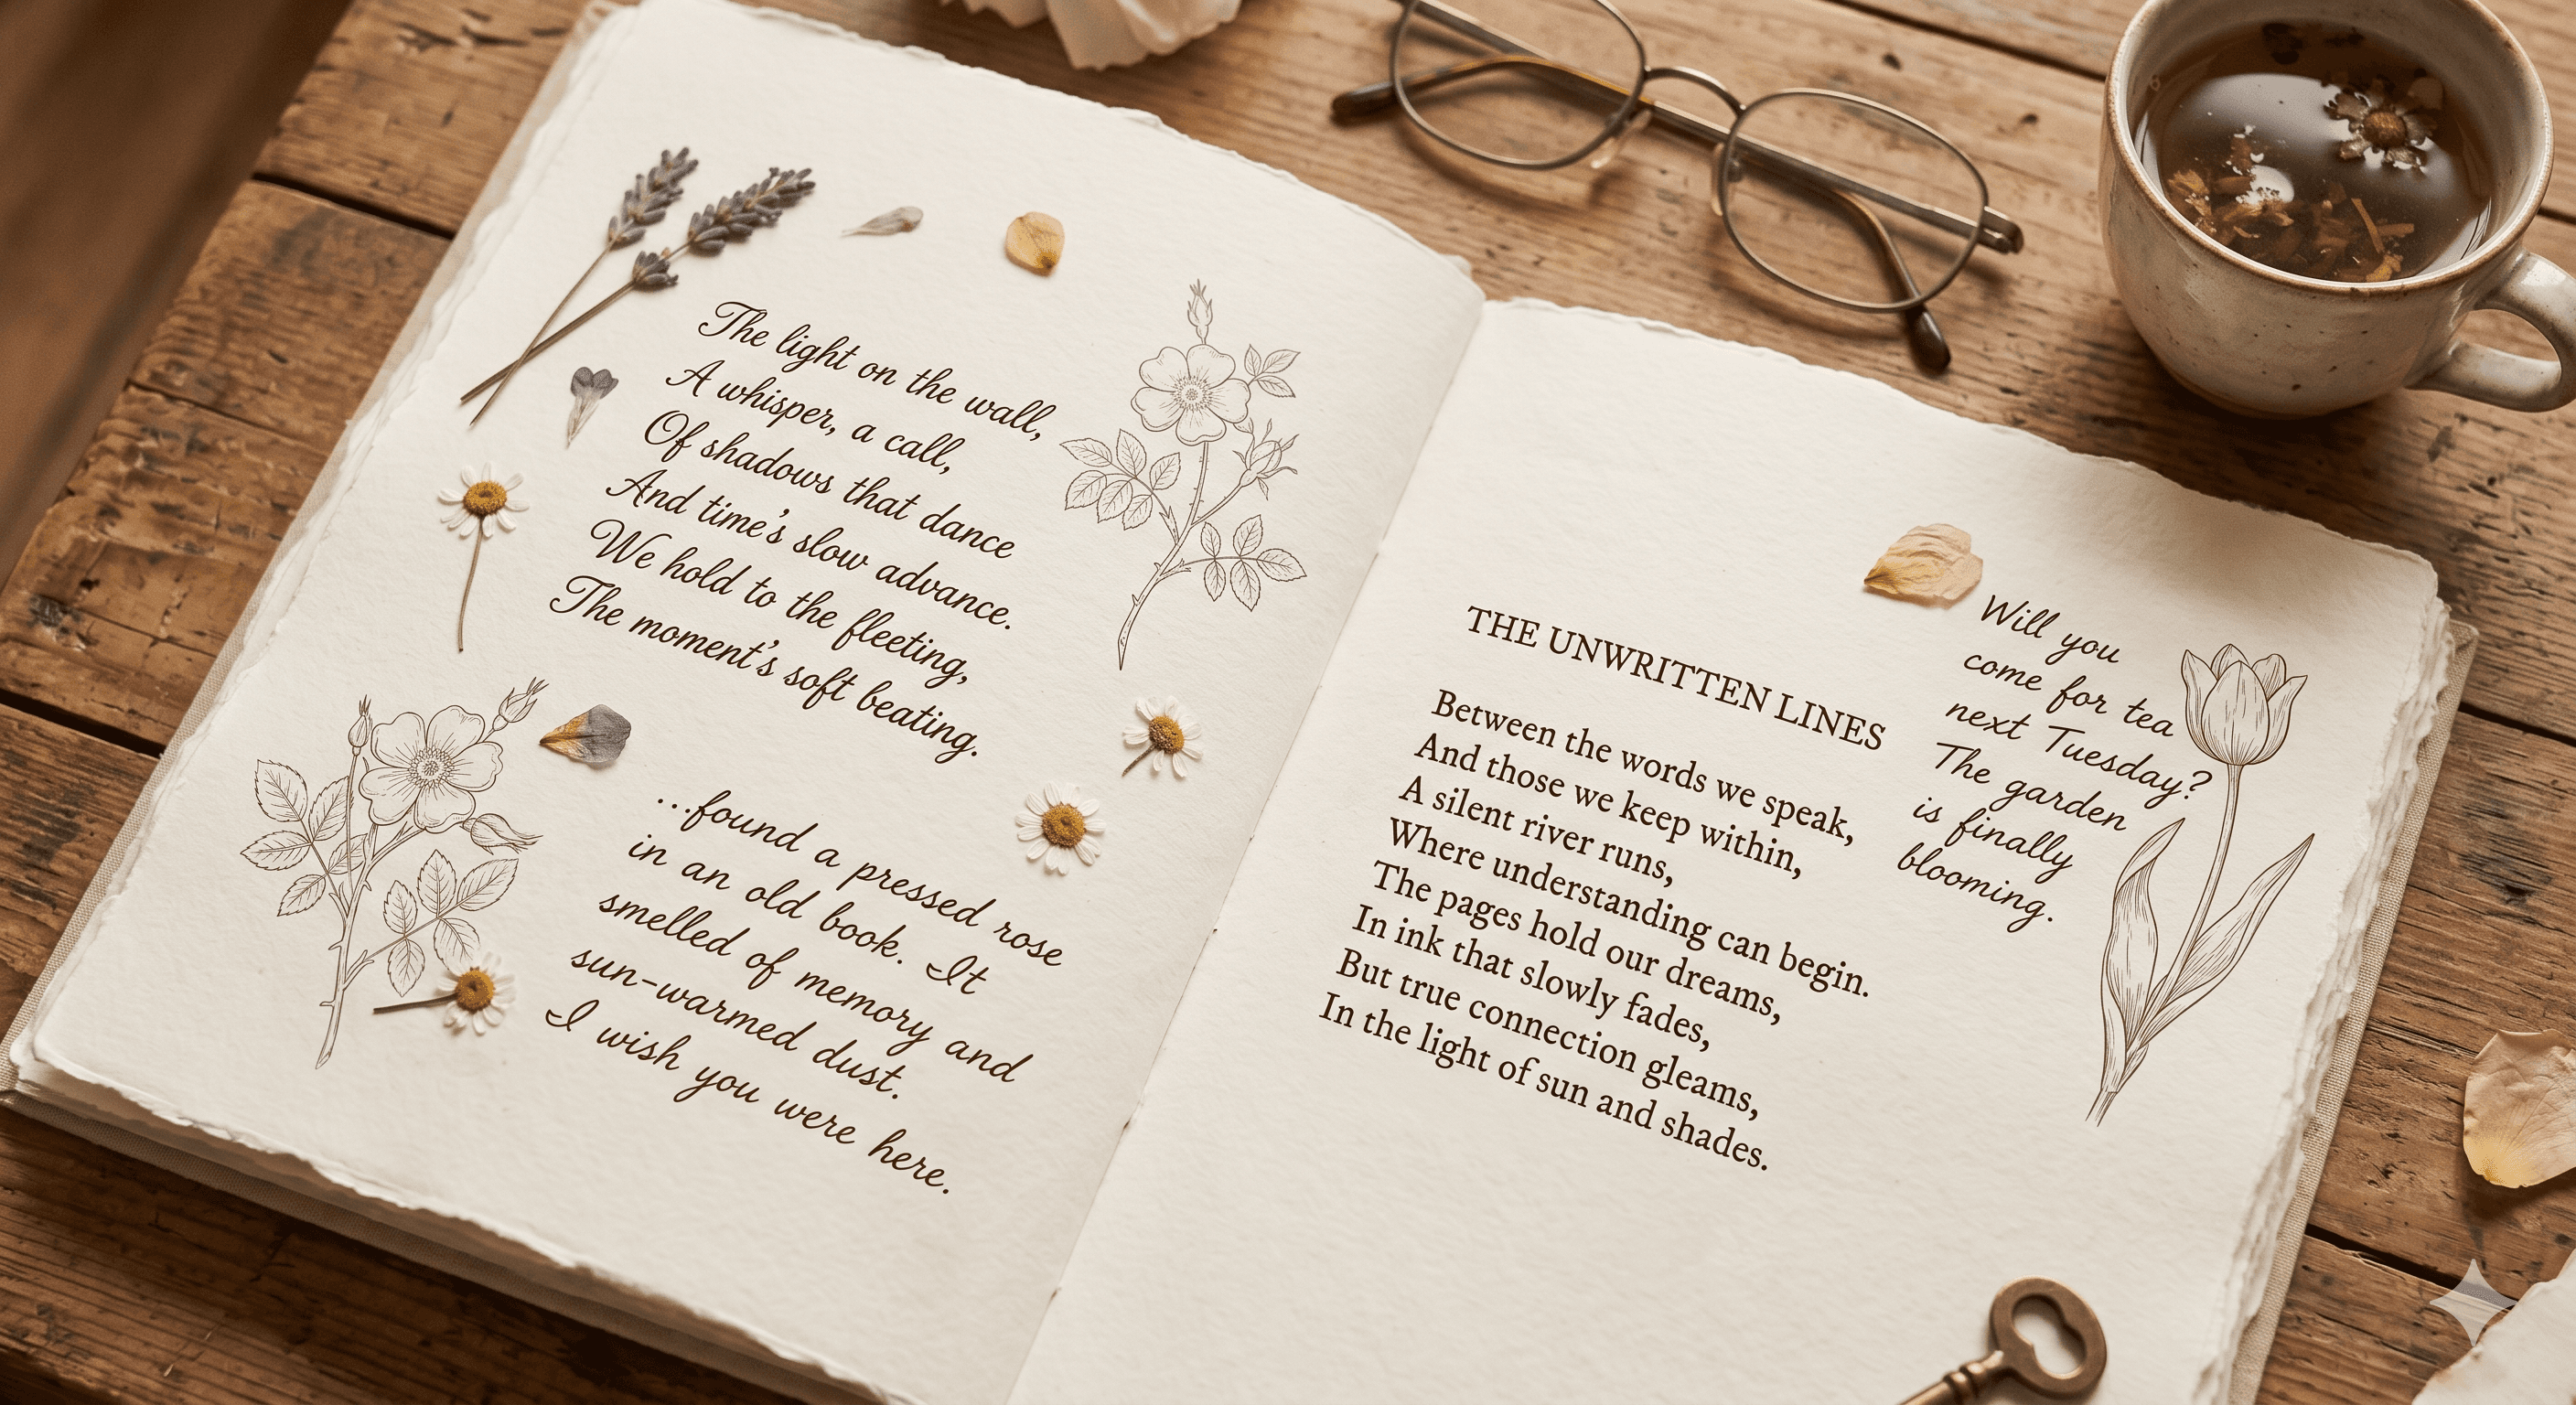 The light on the wall,
A whisper, a call,
Of shadows that dance
And time's slow advance.
We hold to the fleeting,
The moment's soft beating.
...found a pressed rose
in an old book. It
smelled of memory and
sun-warmed dust.
I wish you were here.
THE UNWRITTEN LINES
Between the words we speak,
And those we keep within,
A silent river runs,
Where understanding can begin.
The pages hold our dreams,
In ink that slowly fades,
But true connection gleams,
In the light of sun and shades.
Will you
come for tea
next Tuesday?
The garden
is finally
blooming.